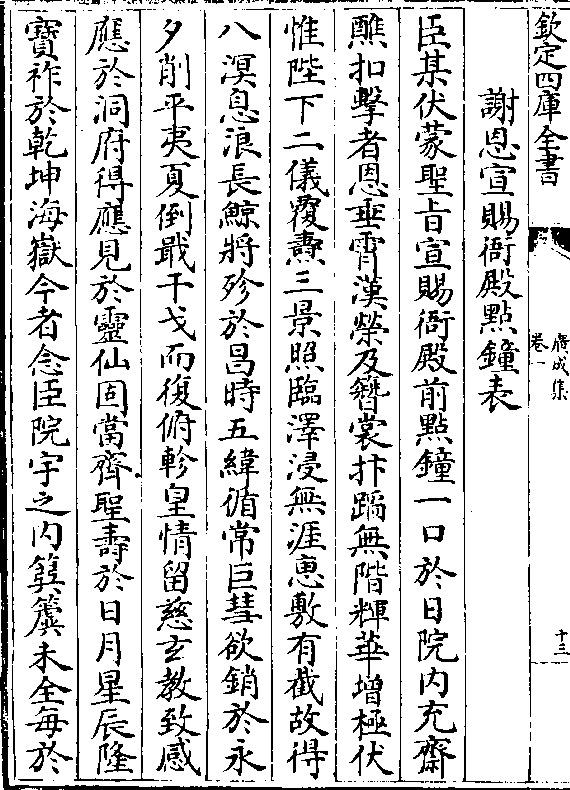 欽定四庫全書
廣成集
卷一
十三
謝恩宣賜衙殿點鐘表
臣某伏蒙聖旨宣賜衙殿前點鐘一口於日院內充齋
醮扣擊者恩垂霄漢榮及簪裳抃蹈無階輝華增極伏
惟陛下二儀覆燾三景照臨澤浸無涯恵敷有截故得
八溟息浪長鯨將殄於昌時五緯循常巨彗欲銷於永
夕削平夷夏倒戢干戈而復俯軫皇情留慈玄教致感
應於洞府得應見於靈仙固當齊聖壽於日月星辰隆
寳祚於乾坤海嶽今者念臣院宇之内簨簴未全每於